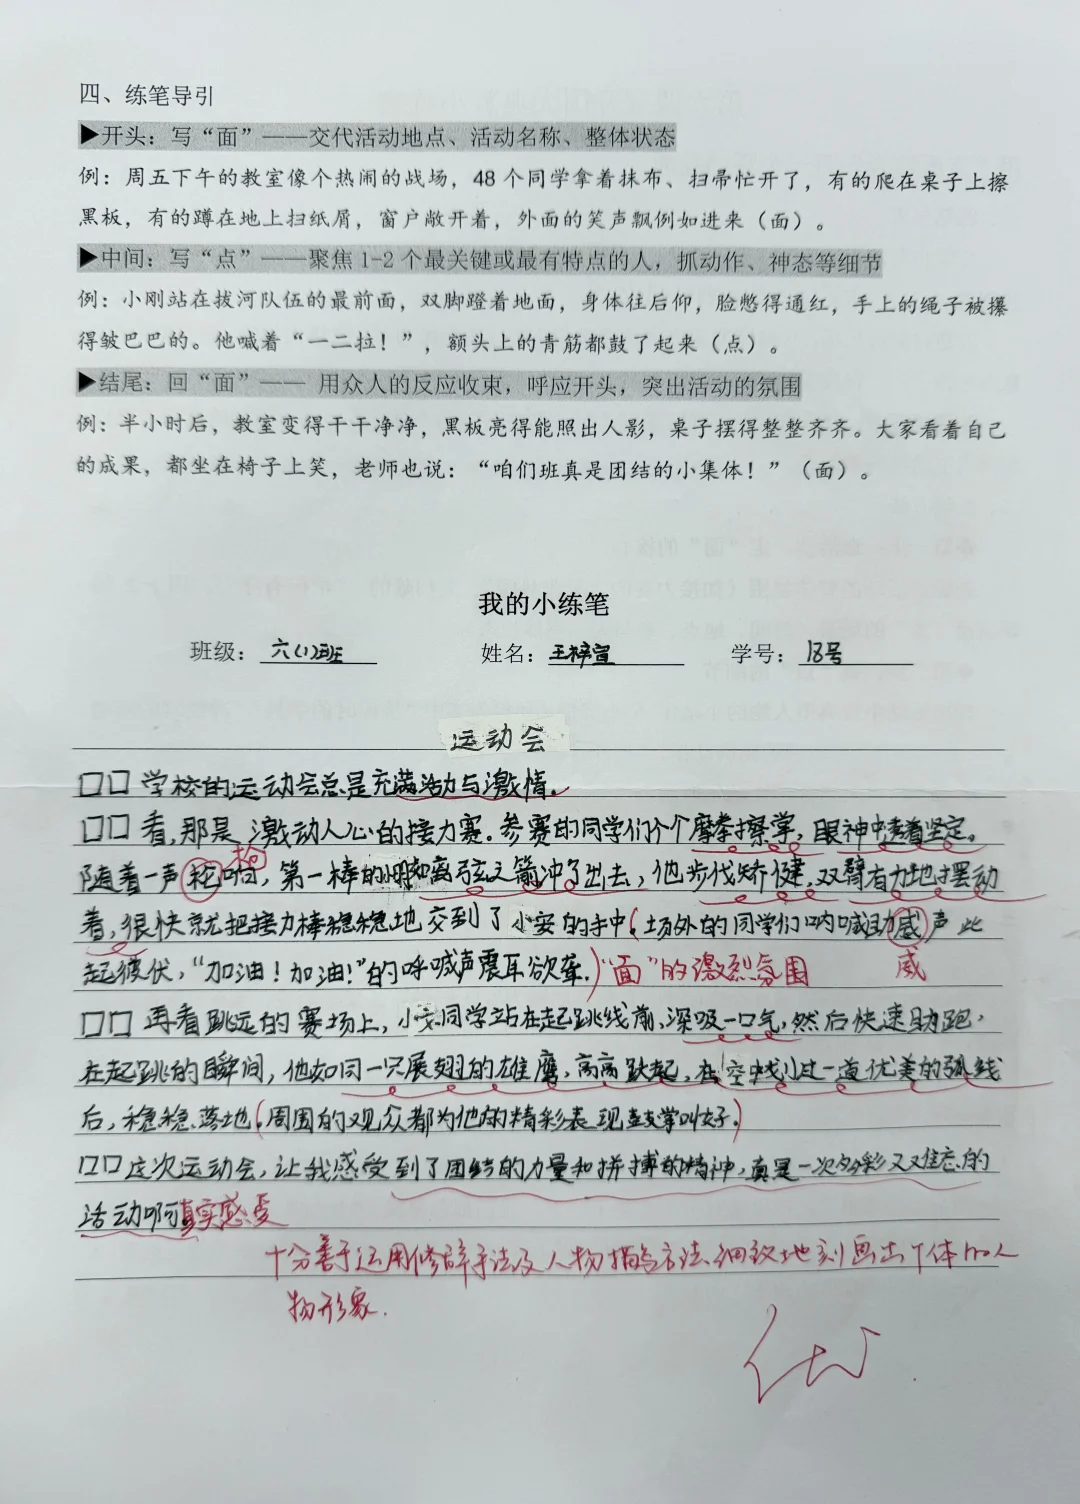 四、练笔导引
▶开头：写“面”——交代活动地点、活动名称、整体状态
例：周五下午的教室像个热闹的战场，48个同学拿着抹布、扫帚忙开了，有的爬在桌子上擦
黑板，有的蹲在地上扫纸屑，窗户敞开着，外面的笑声飘例如进来（面）。
▶中间：写“点”——聚焦1-2个最关键或最有特点的人，抓动作、神态等细节
例：小刚站在拔河队伍的最前面，双脚蹬着地面，身体往后仰，脸憋得通红，手上的绳子被攥
得皱巴巴的。他喊着“一二拉！”，额头上的青筋都鼓了起来（点）。
▶结尾：回“面”—— 用众人的反应收束，呼应开头，突出活动的氛围
例：半小时后，教室变得干干净净，黑板亮得能照出人影，桌子摆得整整齐齐。大家看着自己
的成果，都坐在椅子上笑，老师也说：“咱们班真是团结的小集体！”（面）。
我的小练笔
班级：六(1)班 姓名：王梓萱 学号：18号
运动会
□□学校的运动会总是充满活力与激情。
□□看，那是激动人心的接力赛。参赛的同学们个个摩拳擦掌，眼神中透着坚定。
枪
随着一声 响，第一棒的小明如离弦之箭冲了出去，他步伐矫健，双臂有力地摆动
着，很快就把接力棒稳稳地交到了小安的手中(场外的同学们呐喊助感声此
起彼伏，“加油！加油！”的呼喊声震耳欲聋.)“面”的激烈氛围 威
□□再看跳远的赛场上，小 同学站在起跳线前，深吸一口气，然后快速助跑，
在起跳的瞬间，他如同一只展翅的雄鹰，高高跃起，在空中划过一道优美的弧线
后，稳稳落地(周围的观众都为他的精彩表现鼓掌叫好。)
□□这次运动会，让我感受到了团结的力量和拼搏的精神，真是一次多彩又难忘的
活动啊 真实感受
十分善于运用修辞手法及人物描写方法，细致地刻画出个体的人
物形象.